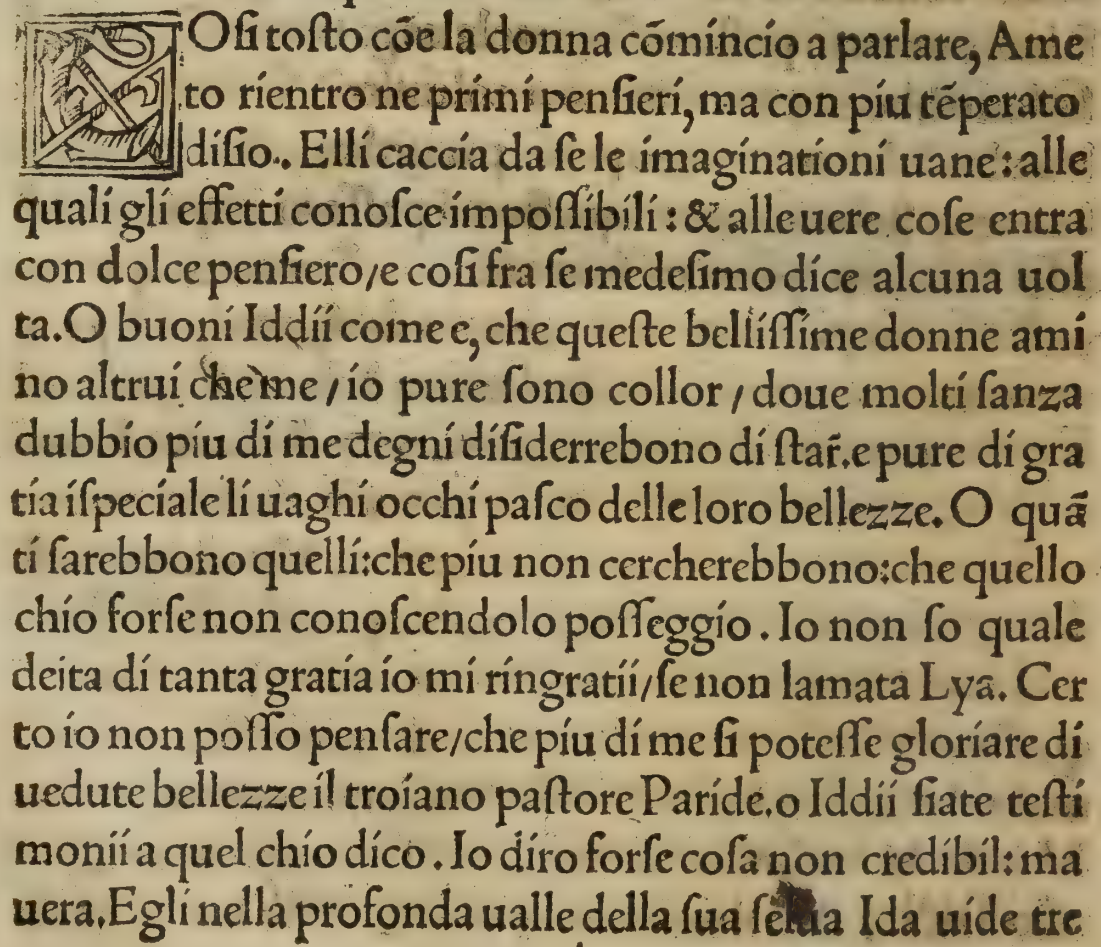 Oſi toſto cōe la donna cōmincio a parlare, Ame
to rientro ne primi penſieri, ma con piu tēperato
diſio. Elli caccia da ſe le imaginationi uane: alle
quali gli effetti conoſce impoſſibili: & alle uere coſe entra
con dolce penſiero/e coſi fra ſe medeſimo dice alcuna uol
ta. O buoni Iddii come e, che queſte belliſſime donne ami
no altrui che me / io pure ſono collor / doue molti ſanza
dubbio piu di me degni diſiderrebono di ſtar̃. e pure di gra
tia iſpeciale li uaghi occhi paſco delle loro bellezze. O quā
ti ſarebbono quelli: che piu non cercherebbono: che quello
chio forſe non conoſcendolo poſſeggio. Io non ſo quale
deita di tanta gratia io mi ringratii/ſe non lamata Lya. Cer
to io non poſſo penſare/che piu di me ſi poteſſe gloriare di
uedute bellezze il troiano paſtore Paride. o Iddii ſiate teſti
monii a quel chio dico. Io diro forſe coſa non credibil: ma
uera. Egli nella profonda ualle della ſua ſelua Ida uide tre